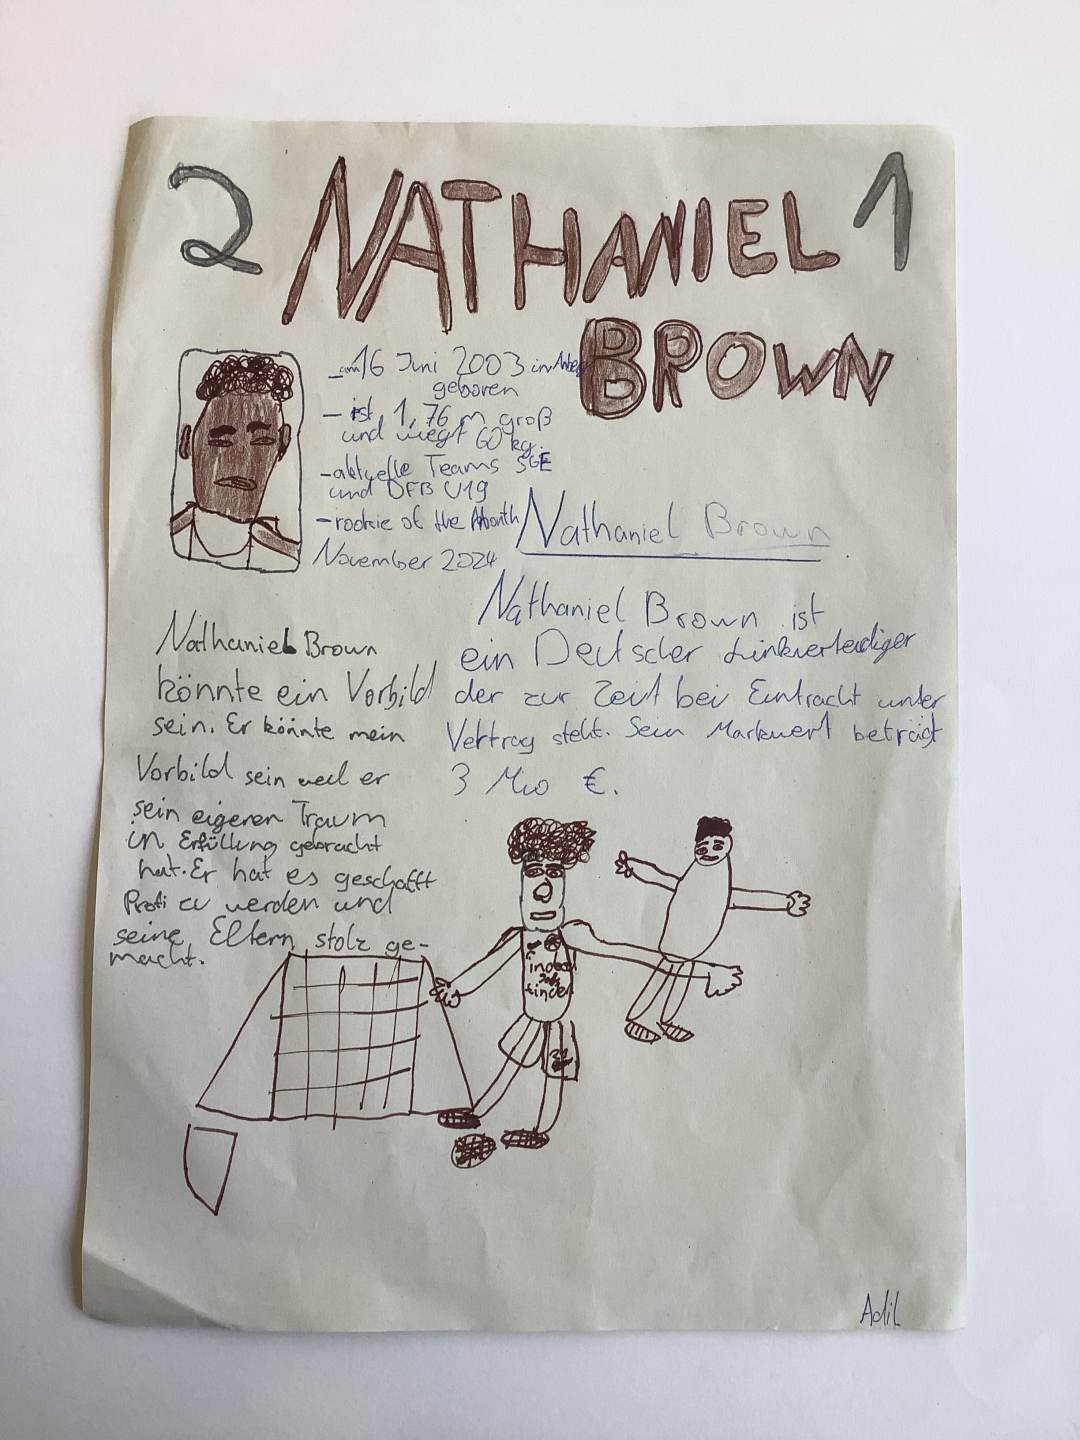 2 NATHANIEL 1
BROWN
- am 16 Juni 2003 in
geboren
- ist 1,76 m groß
und wiegt 60 kg.
- aktuelle Teams SGE
und DFB U19
- rookie of the Month
November 2024
Nathaniel Brown
Nathaniel Brown ist
ein Deutscher Linkverteidiger
der zur Zeit bei Eintracht unter
Vertrag steht. Sein Markwert beträgt
3 Mio €.
Nathaniel Brown
könnte ein Vorbild
sein. Er könnte mein
Vorbild sein weil er
sein eigenen Traum
in Erfüllung gebracht
hat. Er hat es geschafft
Profi zu werden und
seine Eltern stolz ge-
macht.
21
Adil